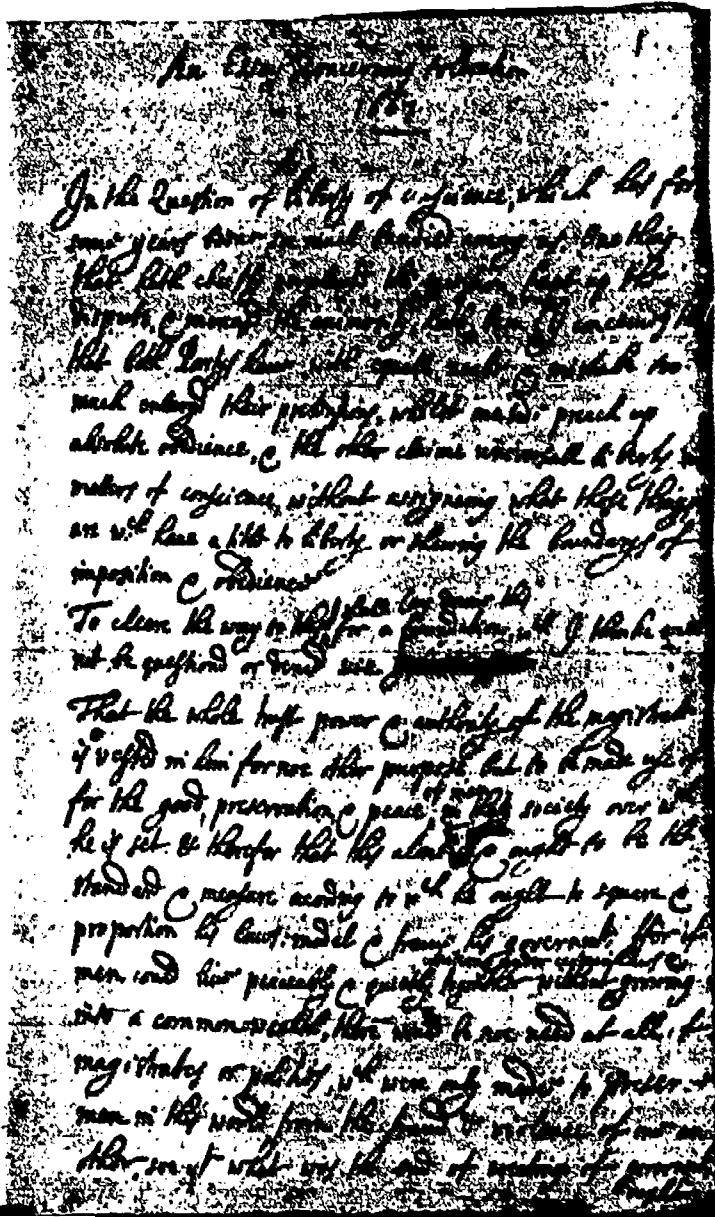 An Essay concerning toleration
1667
In the Question of liberty of conscience, which has for
some years been so much bandied among us. One thing
that hath cheifly perplexd the question, kept up the
dispute, & increasd the animosity, hath been I conceive this
that both Partys have with equall zeale & mistake too
much enlargd their pretensions, whilst one side preach up
absolute obedience, & the other claime universall liberty in
matters of conscience, without assigneing what those things
are wch have a title to liberty or shewing the boundarys of
imposition & obedience
To cleere the way to this I shall lay downe this
for a foundation, wch I thinke will
not be questiond or denied viz
That the whole trust power & authority of the magistrate
is vested in him for noe other purpose but to be made use of
for the good, preservation & peace of men in that society over wch
he is set. & therefor that this alone is & ought to be the
standard & measure according to wch he ought to square &
proportion his laws: model & frame his government. ffor if
men could live peaceably & quietly together without
uniting under certain laws &
growing
into a commonwealth, there would be noe need at all of
magistrates or polities, wch were only made to preserve
men in this world from the fraud & violence of one an
other, soe yt what was the end of erecting of governmt
ought